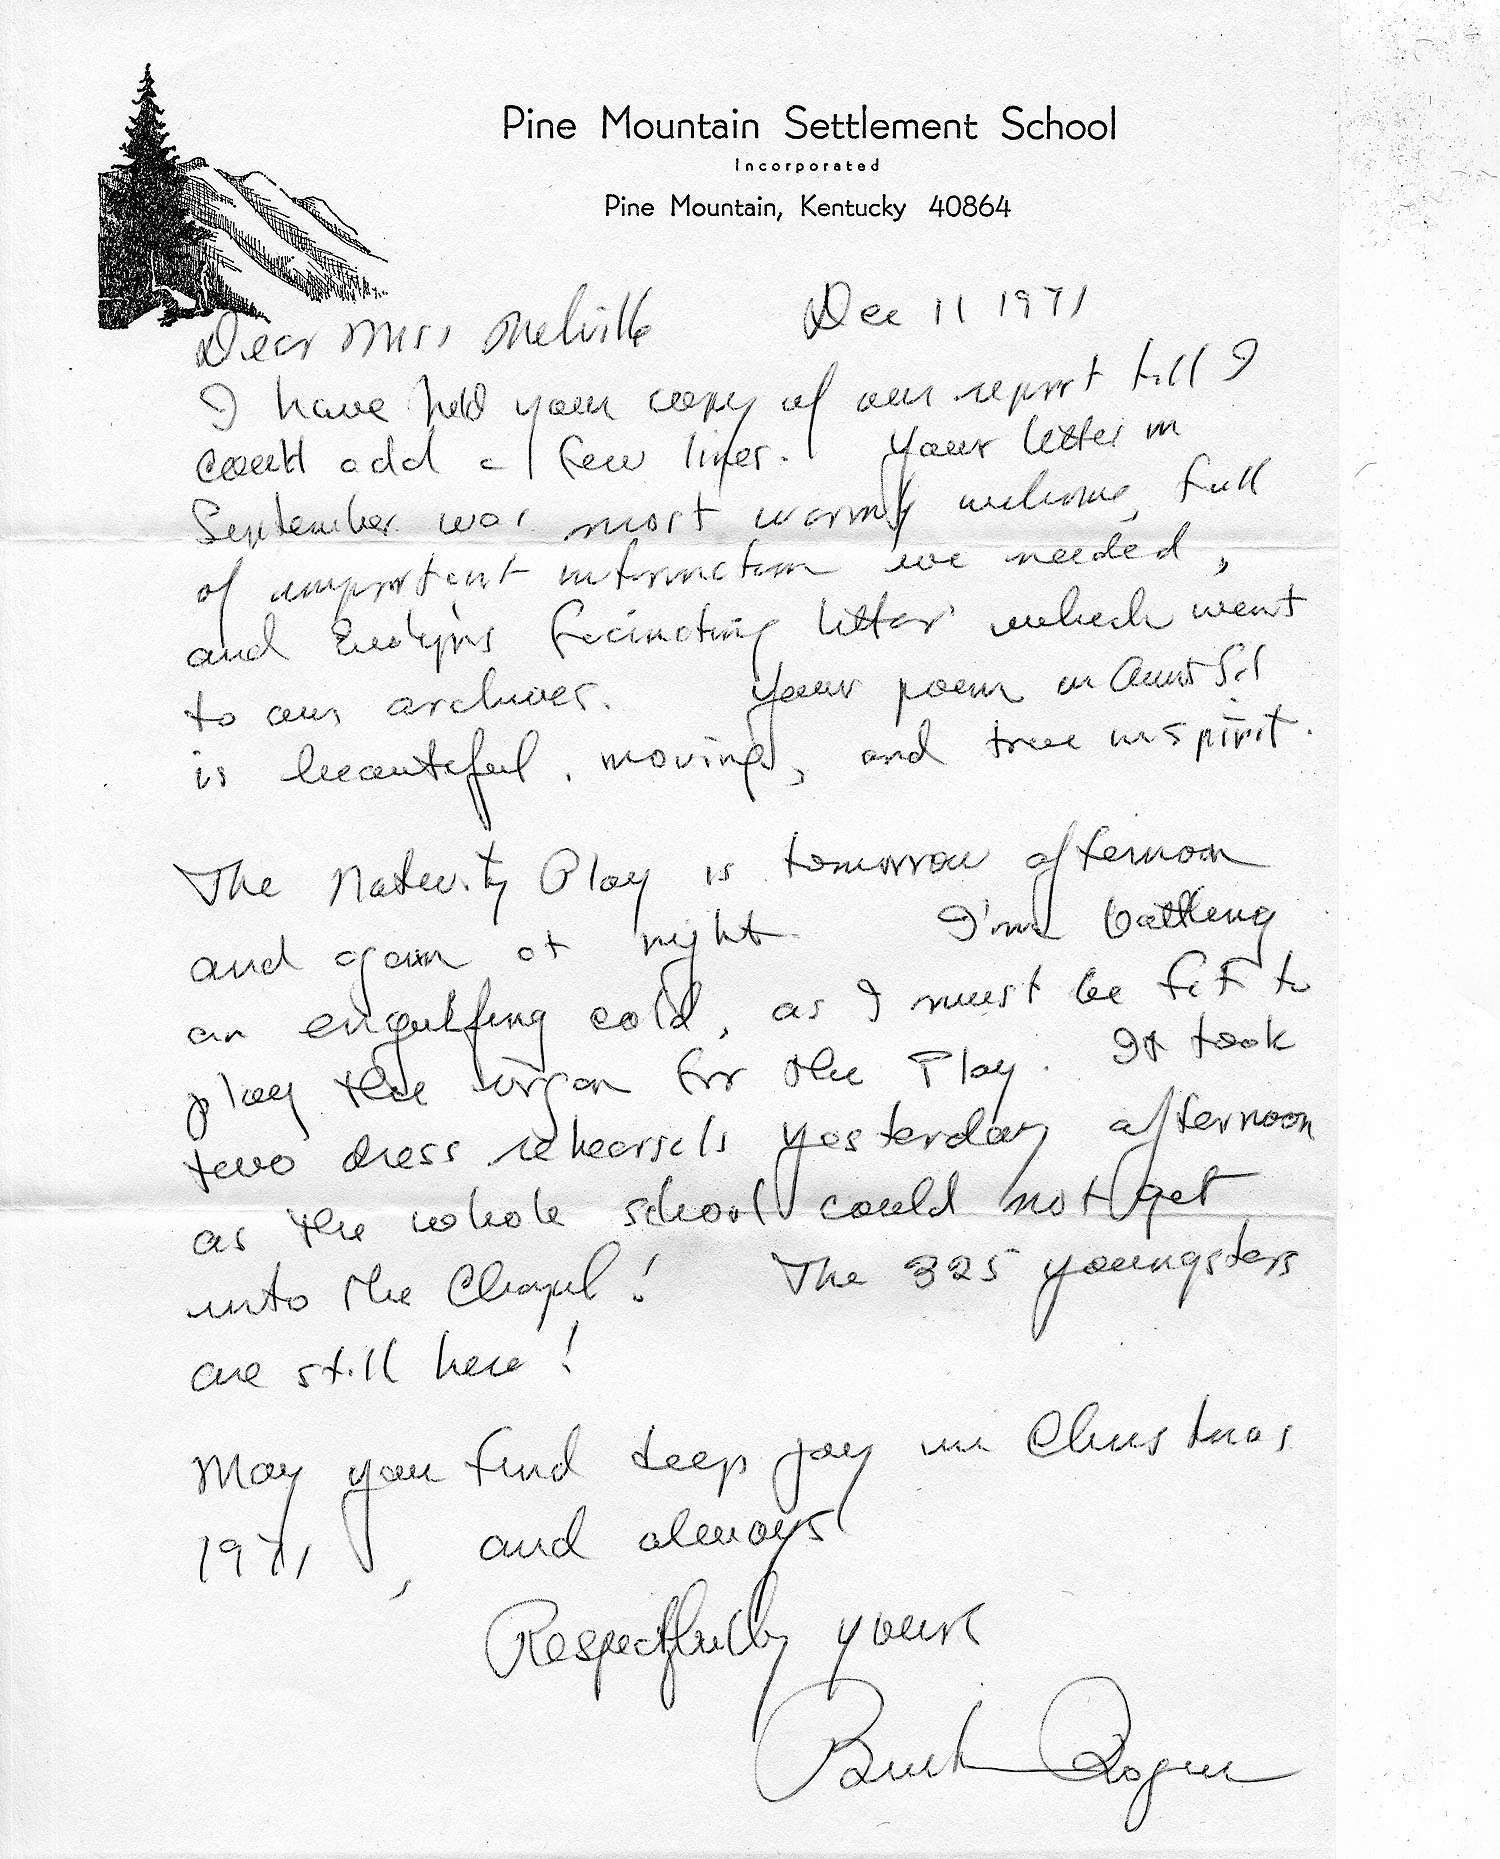 Pine Mountain Settlement School
Incorporated
Pine Mountain, Kentucky 40864
Dear Miss Melville Dec 11 1971
I have held your copy of our report till I
could add a few lines. Your letter in
September was most warmly welcome, full
of important information we needed,
and Evelyn's fascinating letter which went
to our archives. Your poem on Aunt Sal
is beautiful, moving, and true in spirit.
The Nativity Play is tomorrow afternoon
and again at night. I'm battling
an engulfing cold, as I must be fit to
play the organ for the Play. It took
two dress rehearsals yesterday afternoon
as the whole school could not get
into the Chapel! The 325 youngsters
are still here!
May you find deep joy in Christmas
1971, and always
Respectfully yours
Burton Rogers